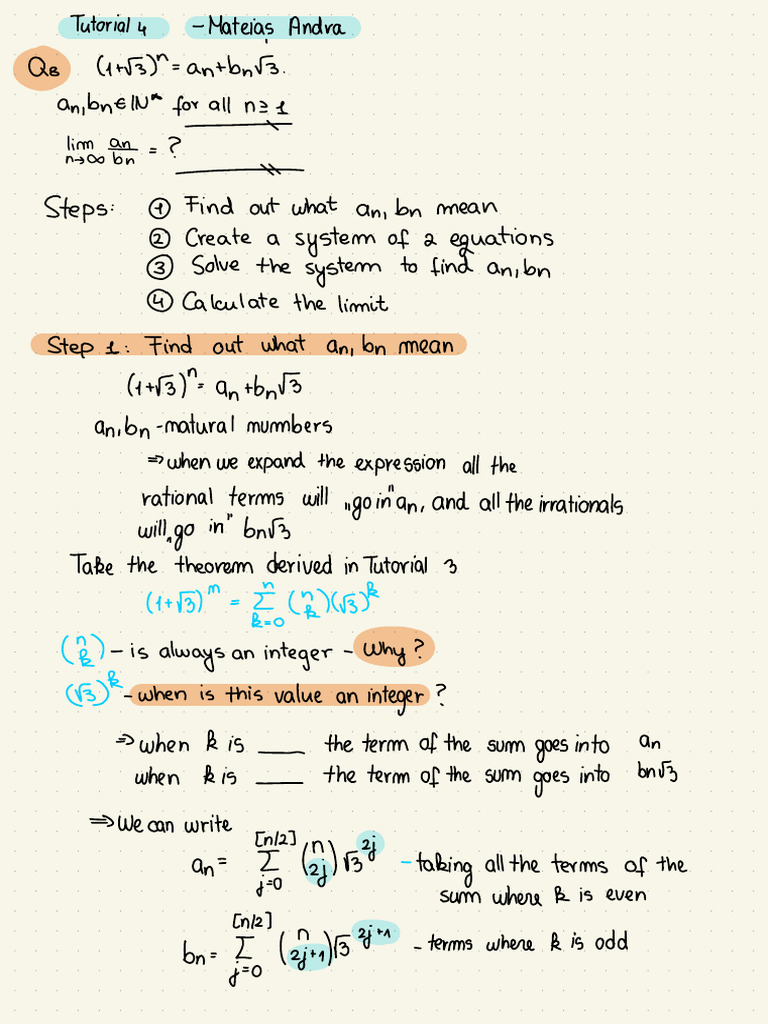 Tutorial 4 - Mateiaș Andra
Q8 (1+√3)ⁿ = an+bn√3.
an, bn ∈ IN* for all n ≥ 1
lim n→∞ an/bn = ?
Steps: ① Find out what an, bn mean
② Create a system of 2 equations
③ Solve the system to find an, bn
④ Calculate the limit
Step 1: Find out what an, bn mean
(1+√3)ⁿ = an+bn√3
an, bn - matural mummbers
⇒ when we expand the expression all the
rational terms will „go in" an, and all the irrationals
will „go in" bn√3
Take the theorem derived in Tutorial 3
(1+√3)^m = Σ_{k=0}^{n} (n k)(√3)^k
(n k) - is always an integer - Why?
(√3)^k - when is this value an integer?
⇒ when k is ___ the term of the sum goes into an
when k is ___ the term of the sum goes into bn√3
⇒ We can write
an = Σ_{j=0}^{[n/2]} (n 2j) √3^{2j} - taking all the terms of the
sum where k is even
bn = Σ_{j=0}^{[n/2]} (n 2j+1) √3^{2j+1} - terms where k is odd